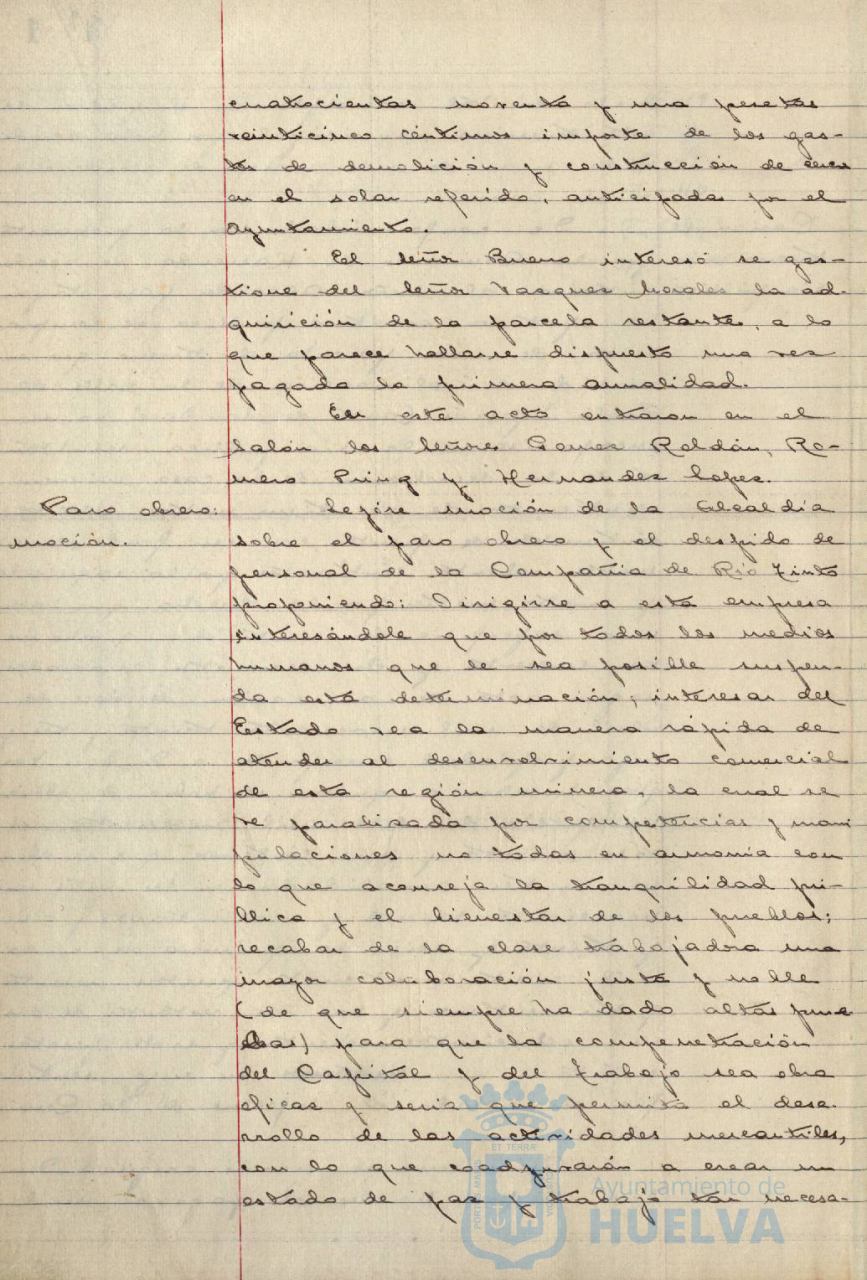 cuatrocientas noventa y una pesetas
veinticinco céntimos importe de los gas-
tos de demolición y construcción de cerca
en el solar referido, anticipadas por el
Ayuntamiento.
El señor Bueno interesó se ges-
tione del señor Vazquez Morales la ad-
quisición de la parcela restante, a lo
que parece hallarse dispuesto una vez
pagada la primera anualidad.
En este acto entraron en el
Salón los señores Gomez Roldán, Ro-
mero Prinq y Hernandez Lopez.
Paro obrero:
moción.
Leyóse moción de la Alcaldía
sobre el paro obrero y el despido de
personal de la Compañia de Rio Tinto
proponiendo: Dirigirse a esta empresa
interesándole que por todos los medios
humanos que le sea posible suspen-
da esta determinación; interesar del
Estado vea la manera rápida de
atender al desenvolvimiento comercial
de esta región minera, la cual se
ve paralizada por competencias y mani
pulaciones no todas en armonia con
lo que aconseja la tranquilidad pú-
blica y el bienestar de los pueblos;
recabar de la clase trabajadora una
mayor colaboración justa y noble
(de que siempre ha dado altas prue
bas) para que la compenetración
del Capital y del Trabajo sea obra
eficaz y seria que permita el desa-
rrollo de las actividades mercantiles,
con lo que coadyuvarán a crear un
estado de paz y trabajo tan necesa-
Ayuntamiento de
HUELVA